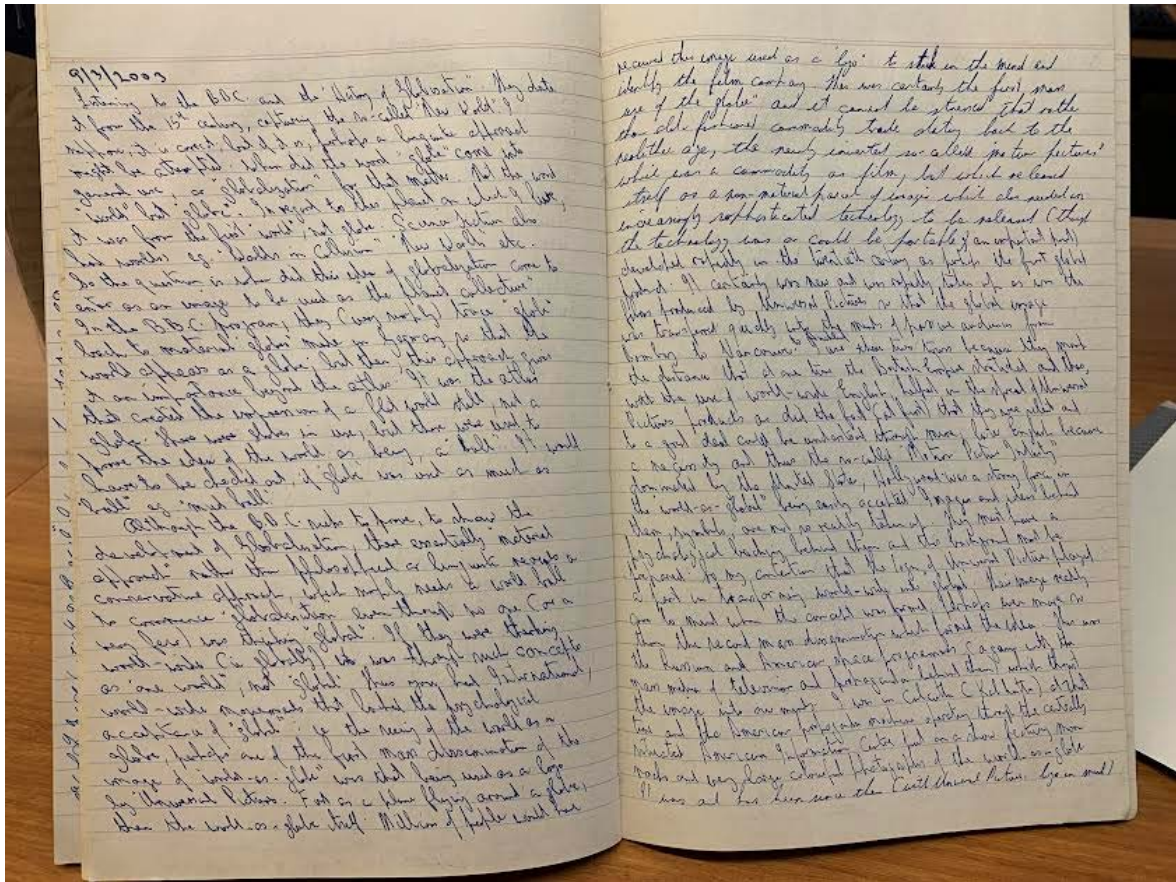 9/3/2003
Listening to the B.B.C. and the "History of Globalisation". They date
it from the 15th century, capturing the so-called "New World". I
suppose, it is correct, but it is, perhaps a linguistic approach
might be attempted. When did the word "globe" come into
general use, or "globalization" for that matter. Not the word
"world" but "globe". In regard to this planet on which I live,
it was from the first "world", not globe. Science fiction also
had worlds, eg. "Worlds in Collision" "New Worlds etc.
So the question is when did this idea of globalization come to
enter as an image to be used as the collective"
In the B.B.C. program, they (very simply) trace "globe"
back to material "globes" made in Germany so that the
world appears as a globe, but then, this approach gives
it an importance beyond the atlas. It was the atlas
that created the impression of a flat world still, not a
globe. There were globes in use, but these were used to
prove the idea of the world as being, a "ball". It would
have to be checked out, if "globe" was used as much as
"ball" eg "mud ball".
Although the B.B.C. seeks to prove, to show the
development of Globalisation, these essentially material
approach" rather than philosophical or linguistic reveals a
conservative approach, which simply needs a world ball
to commence "globalization" even though no one (or a
very few) was thinking "global". If they were thinking
world-wide (ie globally) it was through such concepts
as "one world", not "global". Thus you had International,
world-wide movements that lacked the psychological
acceptance of "globe", ie the seeing of the world as a
globe, perhaps one of the first mass dissemination of the
image of world-as-globe was that being used as a logo
by Universal Pictures. First as a plane flying around a globe,
then the world-as-globe itself. Millions of people would have
received this image used as a "logo" to stick in the mind and
identify the film company. This was certainly the first mass
use of the "globe" and it cannot be stressed that rather
than old-fashioned commodity trade dating back to the
neolithic age, the newly invented so-called "motion pictures"
which was a commodity as film, but which released
itself as a non-material parcel of images which also needed an
increasingly sophisticated technology to be released (though
the technology was or could be portable, an important part)
developed rapidly in the twentieth century as perhaps the first global
product. It certainly was new and was rapidly taken up as were the
films produced by Universal Pictures so that the global image
was transferred quickly into the minds of passive audiences from
Bombay to Vancouver. I use these two towns because they
the distance that at one time the British Empire stretched and thus,
with the use of world-wide English, helped in the spread of Universal
Pictures products as did the fact (at first) that they were silent and
to a great deal could be understood through mime, later English became
a necessity and thus the so-called "Motion Picture Industry"
dominated by the United States, Hollywood was a strong force in
the "world-as-globe" being easily accepted. Images and ideas behind
them, symbols are not so readily taken up. They must have a
psychological backing behind them and this background must be
prepared. So my contention that the logo of Universal Pictures played
a part in transforming world-wide into global. This image readily
came to mind when the concept was formed. Perhaps even more so
then the second mass dissemination which forced the idea. This was
the Russian and American space programmes (again with the
mass media of television and propaganda behind them) which thrust
the image into our minds. I was in Calcutta (Kolkata) at that
time and the American propaganda machine operating through the centrally
located American Information Centre put on a show featuring moon
rocks and very large colourful photographs of the world-as-globe
It was and has been since the (with Universal Pictures logo in mind)